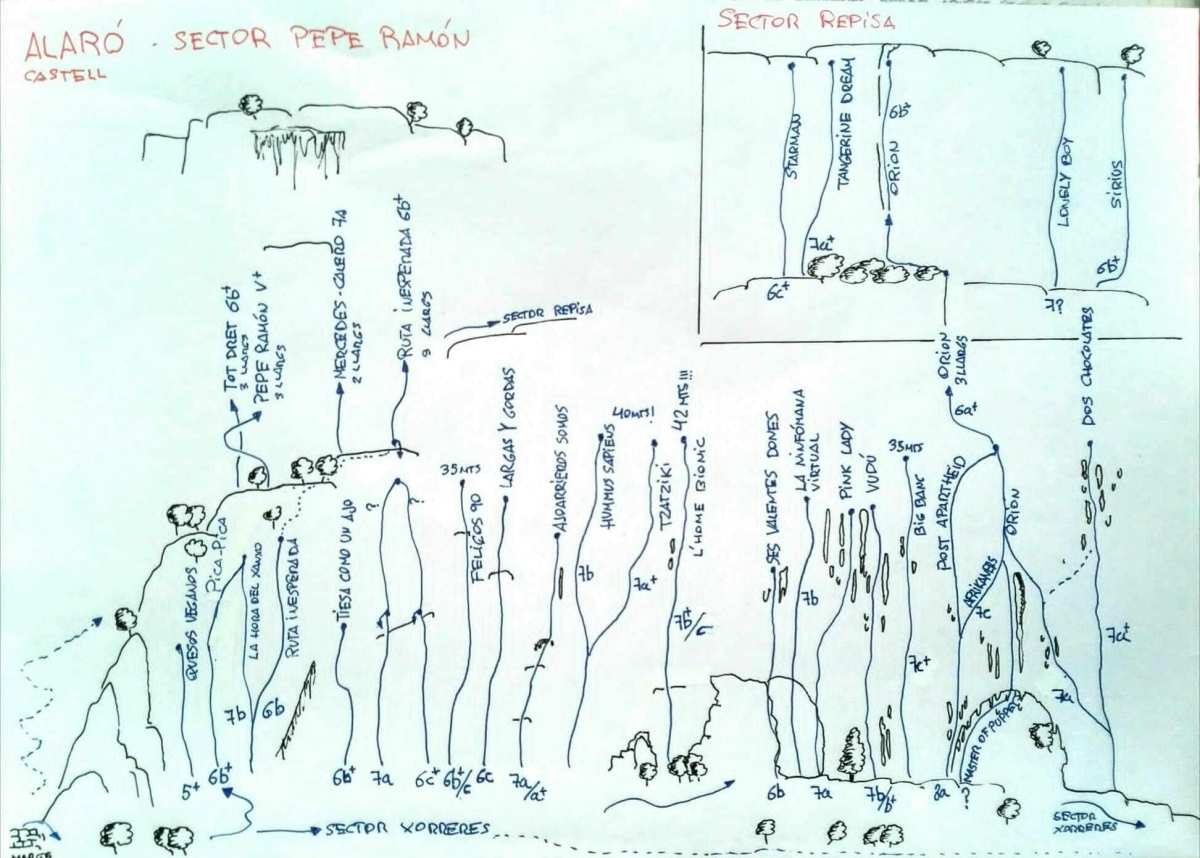 ALARÓ - SECTOR PEPE RAMÓN
CASTELL
SECTOR REPISA
STARMAN
6c+
TANGERINE DREAM
7a+
ORION
6b+
LONELY BOY
7?
SIRIUS
6b+
TOT DRET 6b+
3 LLARGS
PEPE RAMÓN V+
3 LLARGS
MERCEDES-CALERO 7a
2 LLARGS
RUTA INESPERADA 6b+
3 LLARGS
SECTOR REPISA
QUESOS VEGANOS
5+
PICA-PICA
6b+
LA HORA DEL XANXO
7b
RUTA INESPERADA
6b
TIESA COMO UN AJO
6b+
?
7a
?
6c+
35 MTS
FELIÇOS 90
6b+/c
LARGAS Y GORDAS
6c
AIDARRIEROS SOMOS
7a/a+
HUMMUS SAPIENS
7b
40 MTS!
TZATZIKI
7a+
42 MTS!!!
L'HOME BIONIC
7b+/c
SES VALENTES DONES
6b
LA NINFÓMANA
VIRTUAL
7b
PINK LADY
7a
VUDÚ
7b/b+
35 MTS
BIG BANG
7c+
POST APARTHEID
8a
AFRIKANERS
7c
ORION
3 LLARGS
6a+
ORION
7a
MASTER OF PUPPETS
DOS CHOCOLATES
7a+
SECTOR XORRERES
SECTOR
XORRERES
MARGE